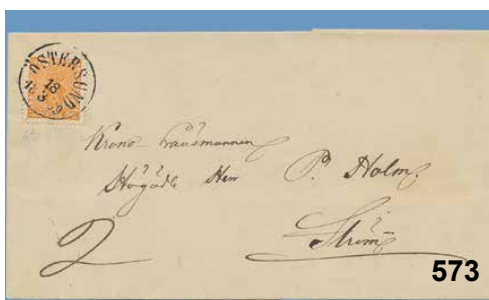 ÖSTERSUND
18
3
Krono-Länsmannen
Högädle Herr P. Holm,
Ström
2
573